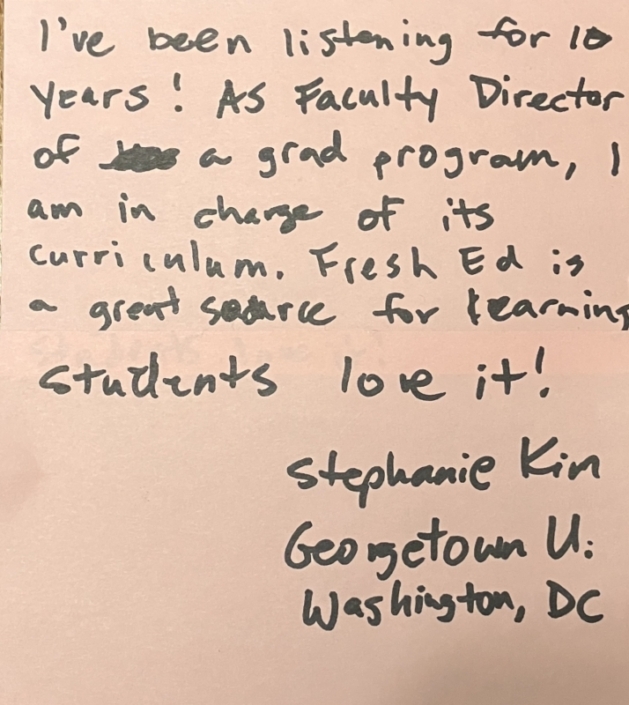 I've been listening for 10
years! As Faculty Director
of a grad program, I
am in charge of its
curriculum. Fresh Ed is
a great source for learning
students love it!
Stephanie Kim
Georgetown U.
Washington, DC